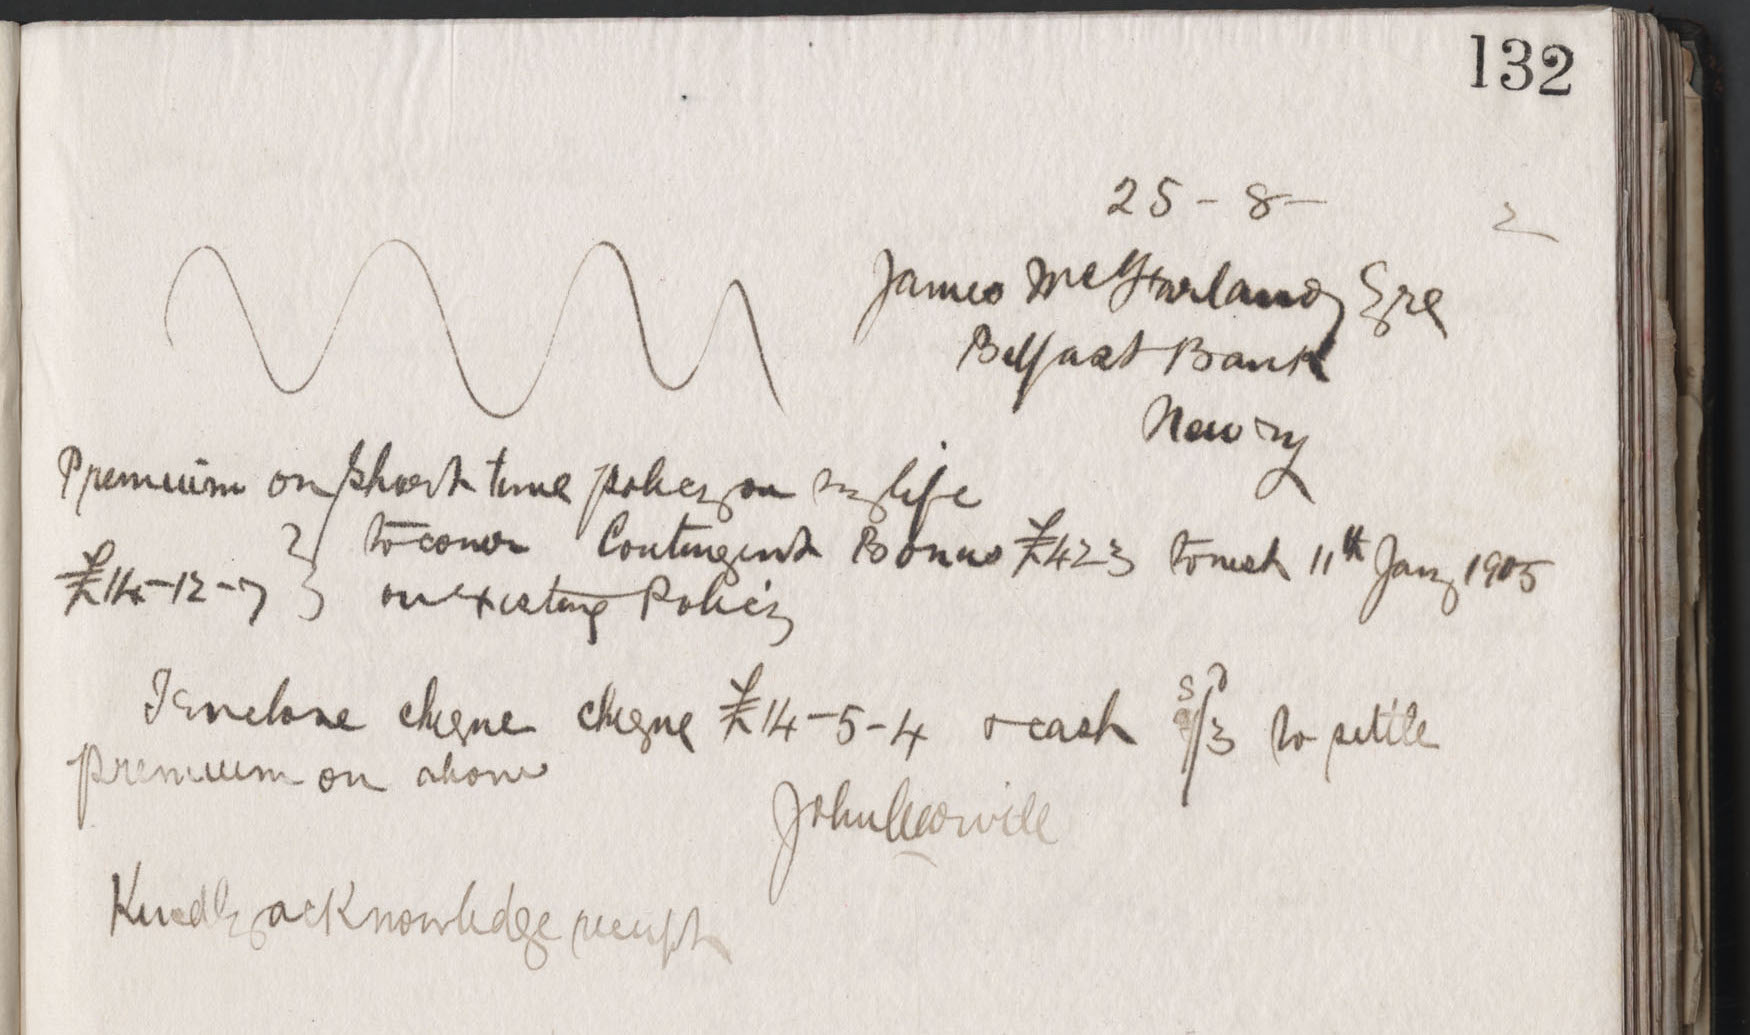 132
25 - 8 - 2
James McFarland Esre
Belfast Bank
Newry
Premium on short time policy on my life
to cover Contingent Bonus £423 to next 11th Jany 1905
£14-12-7 on existing Policy
I enclose cheque cheque £14-5-4 & cash s d /3 to settle
premium on above
John
Kindly acknowledge receipt